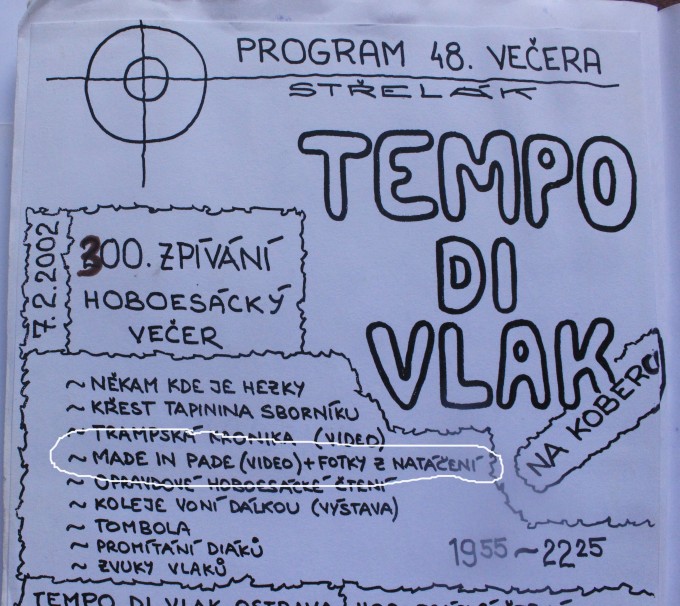 PROGRAM 48. VEČERA
STŘELÁK
TEMPO
DI
VLAK
7.2.2002
300. ZPÍVÁNÍ
HOBOESÁCKÝ
VEČER
NA KOBERC
~ NĚKAM KDE JE HEZKY
~ KŘEST TAPININA SBORNÍKU
~ TRAMPSKÁ KRONIKA (VIDEO)
~ MADE IN PADE (VIDEO) + FOTKY Z NATÁČENÍ
~ OPRAVDOVÉ HOBOESÁCKÉ ČTENÍ
~ KOLEJE VONÍ DÁLKOU (VÝSTAVA)
~ TOMBOLA
~ PROMÍTÁNÍ DIÁKŮ
~ ZVUKY VLAKŮ
19 55 ~ 22 25
TEMPO DI VLAK OSTRAVA